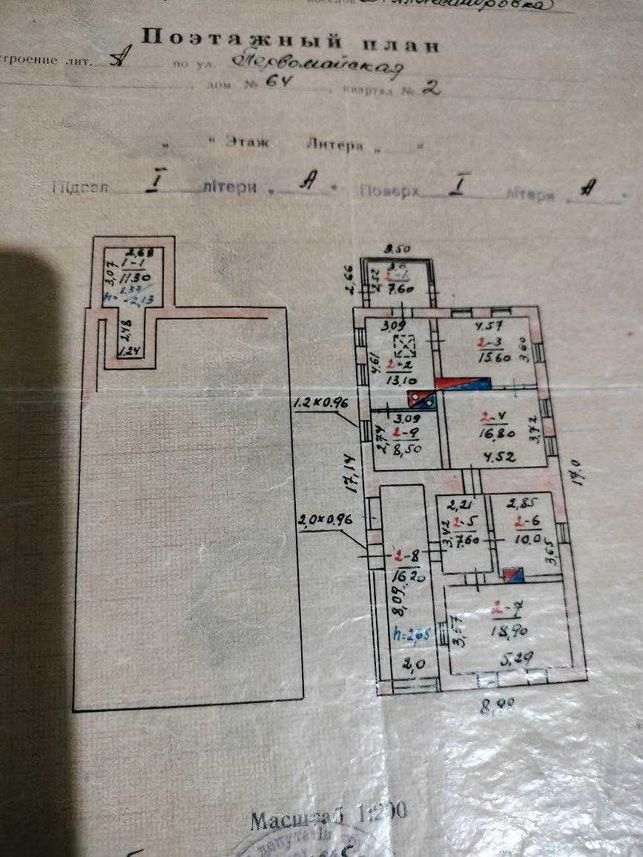 Поэтажный план
строение лит. А по ул. Первомайская
дом № 64, квартал № 2
„ “ Этаж Литера „ “
Підвал I літери „ А “ Поверх I літери А
2,68
1-1
11.30
3,07
-2,13
2,48
1.24
3.50
2,66
2,52
2-1
7.60
3,09
4,61
2-2
13,10
4.57
2-3
15.60
3,60
1.2 х 0.96
3.09
2,74
2-9
8,50
2-4
16,80
4.52
3,72
17,14
17.0
2,0 х 0.96
2-8
16,20
8,09
h=2,65
2,0
2,21
3,42
2-5
7.60
2,85
2-6
10.0
3,65
2-7
18,90
3,57
5,29
8,99
Масштаб 1:200